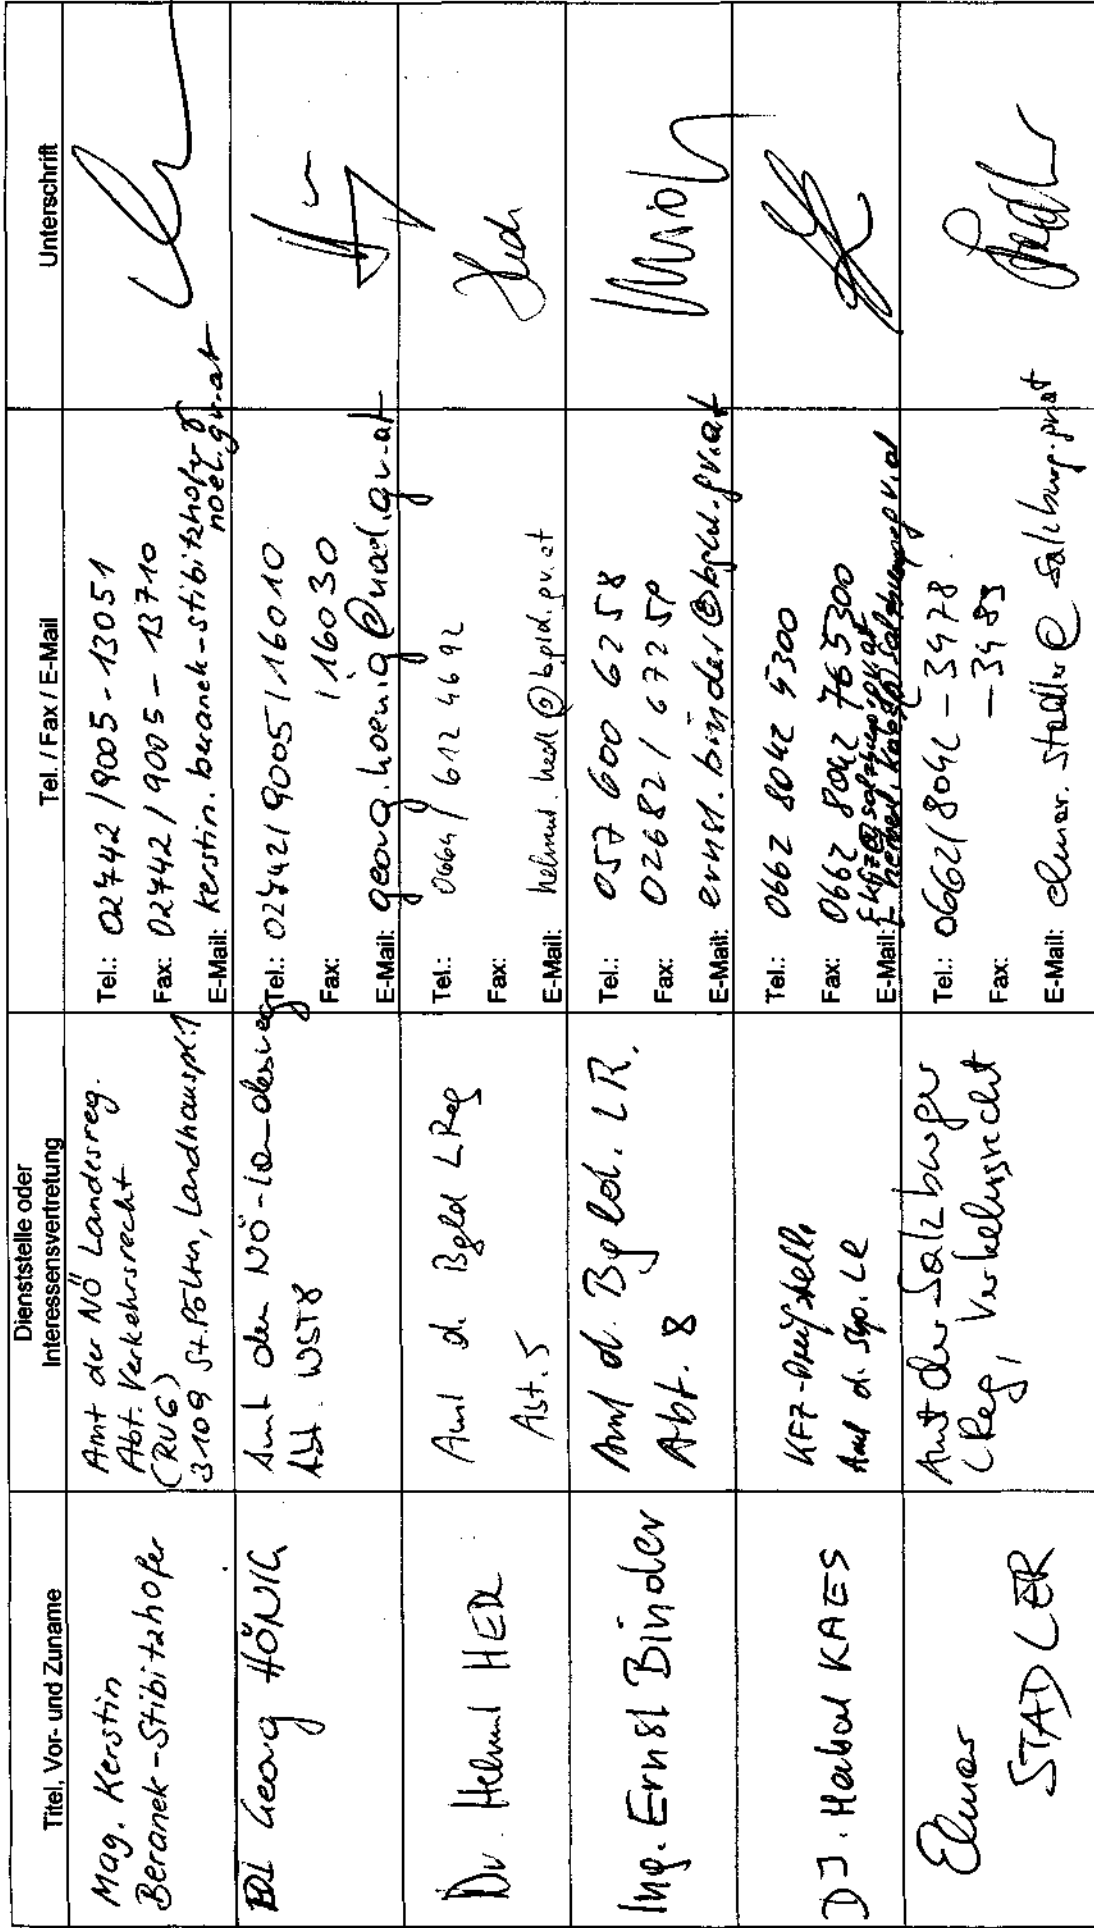 Titel, Vor- und Zuname
Dienststelle oder
Interessensvertretung
Tel. / Fax / E-Mail
Unterschrift
Mag. Kerstin
Beranek-Stibitzhofer
Amt der NÖ Landesreg.
Abt. Verkehrsrecht
(RU6)
3109 St. Pölten, Landhauspl. 1
Tel.: 02742 / 9005 - 13051
Fax: 02742 / 9005 - 13710
E-Mail: kerstin.beranek-stibitzhofer@
noel.gv.at
DI Georg HÖNIG
Amt der NÖ-Landesreg
Abt. WST8
Tel.: 02742 / 9005 / 16010
Fax: / 16030
E-Mail: georg.hoenig@noel.gv.at
Dr. Helmut HEDL
Amt d. Bgld LReg
Abt. 5
Tel.: 0664 / 612 46 92
Fax:
E-Mail: helmut.hedl@bgld.gv.at
Ing. Ernst Binder
Amt d. Bgld. LR.
Abt. 8
Tel.: 057 600 6258
Fax: 02682 /
E-Mail: ernst.binder@bgld.gv.at
DI. KAES
KFZ-Prüfstelle
Amt d. Sbg. LR
Tel.: 0662 8042 5300
Fax: 0662 8042 765300
E-Mail:
Elmar
STADLER
Amt der Salzburger
LReg, Verkehrsrecht
Tel.: 0662 / 8042 - 3478
Fax: - 3483
E-Mail: elmar.stadler@salzburg.gv.at